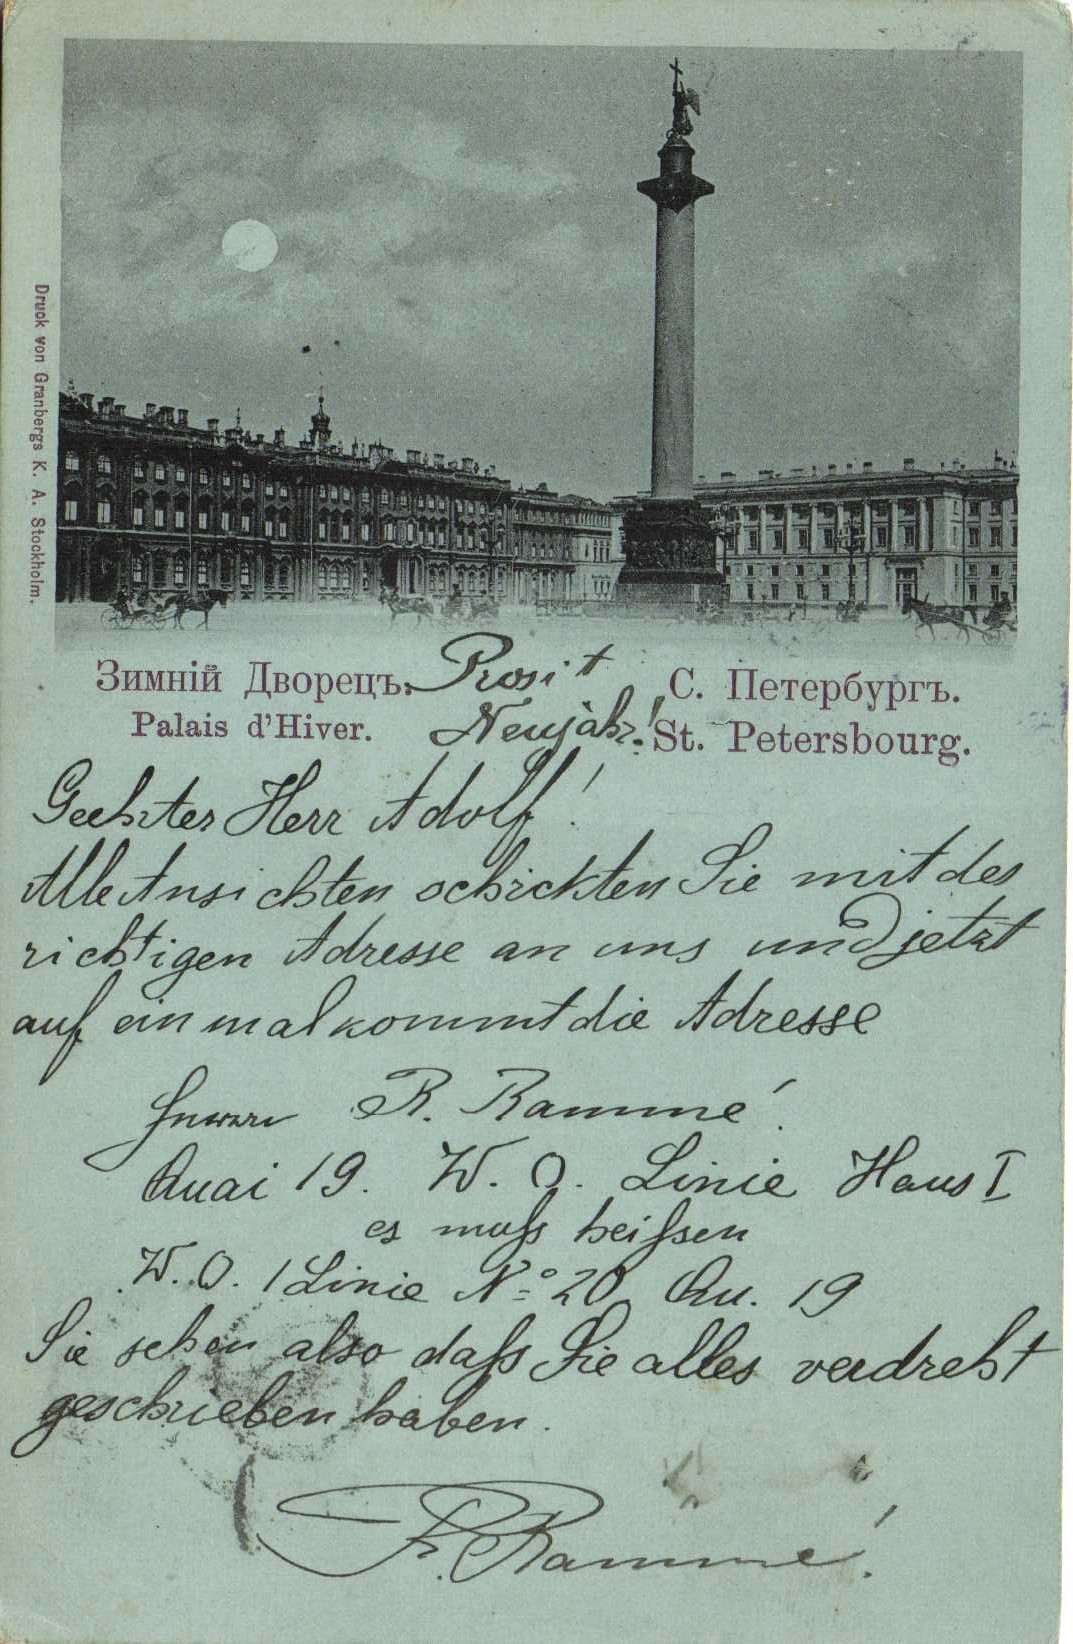 Druck von Granbergs K. A. Stockholm.
Зимнiй Дворецъ.
Palais d'Hiver.
Prosit
Neujahr!
С. Петербургъ.
St. Petersbourg.
Geehrter Herr Adolf!
Alle Ansichten schickten Sie mit der
richtigen Adresse an uns und jetzt
auf einmal kommt die Adresse
R. Rammé
Quai 19. W. O. Linie Haus I
es muß heißen
W. O. 1 Linie No 20 Qu. 19
Sie sehen also daß Sie alles verdreht
geschrieben haben.
F. Rammé.